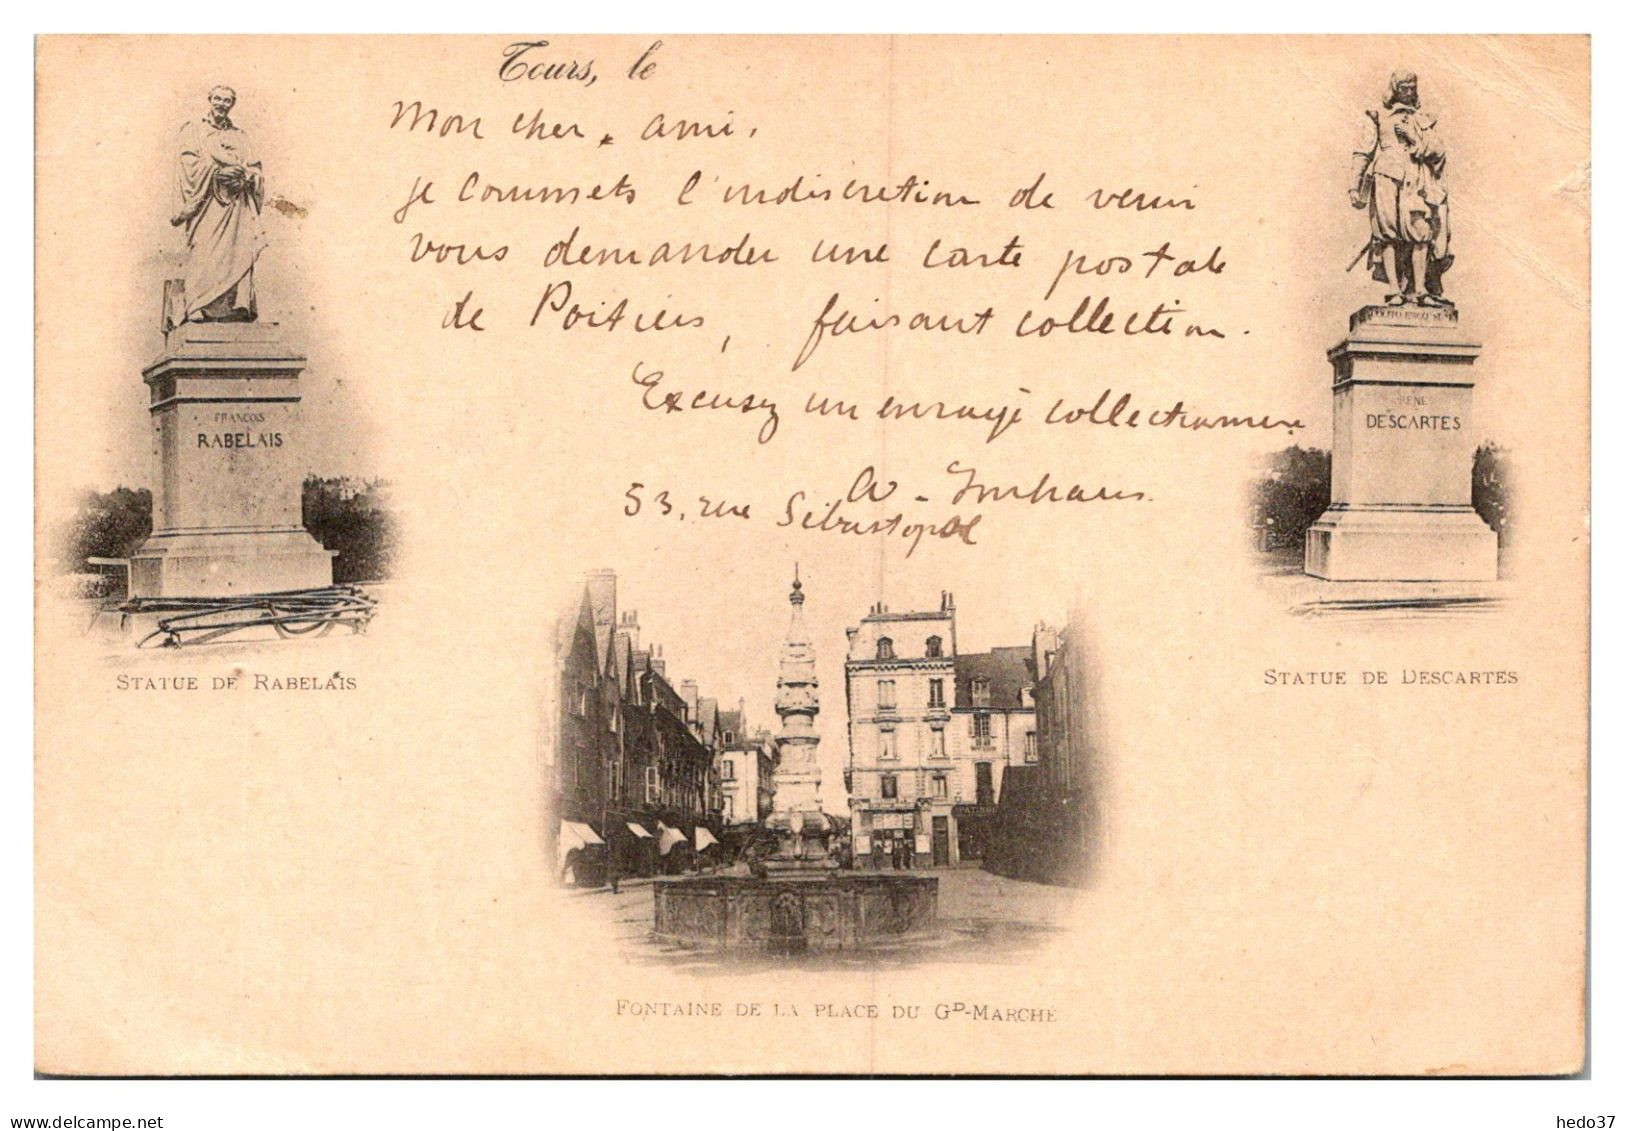 Tours, le
Mon cher ami,
je commets l'indiscretion de venir
vous demander une carte postale
de Poitiers, faisant collection.
Excusez un enragé collectionneur
A. Imhaus
53, rue Sébastopol
FRANÇOIS
RABELAIS
RENÉ
DESCARTES
STATUE DE RABELAIS
STATUE DE DESCARTES
FONTAINE DE LA PLACE DU GD-MARCHÉ
delcampe.net
hedo37